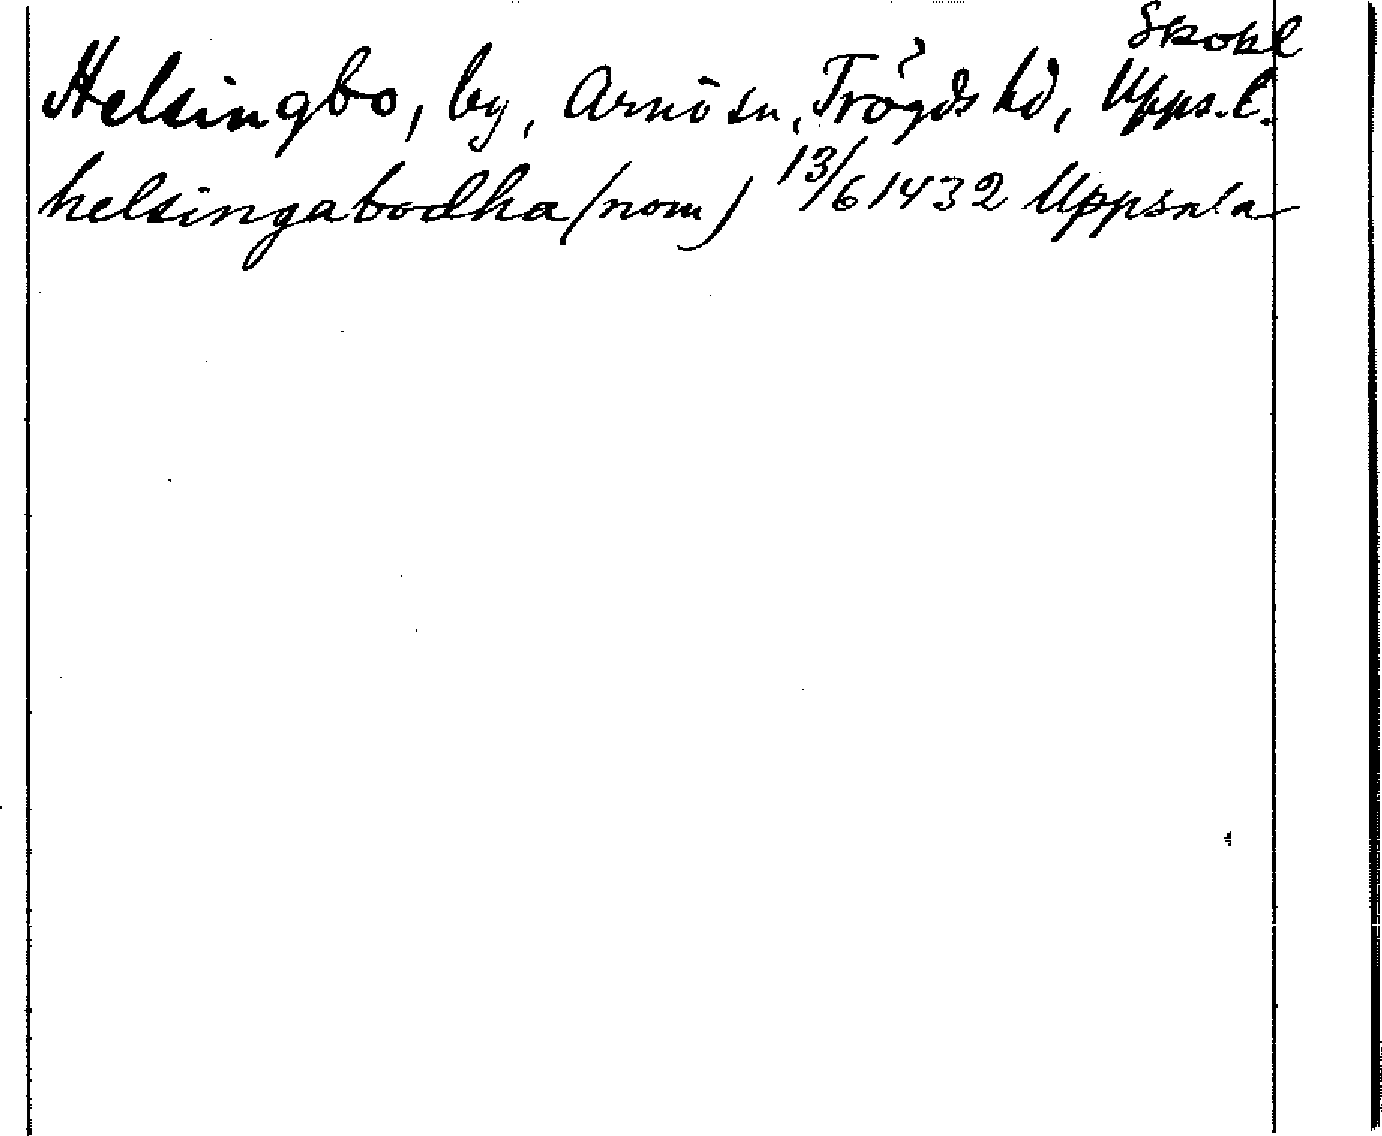 Skokl
Helsingbo, by, Arnö sn, Trögds hd, Upps. l.
helsingabodha (nom) 13/6 1432 Uppsala